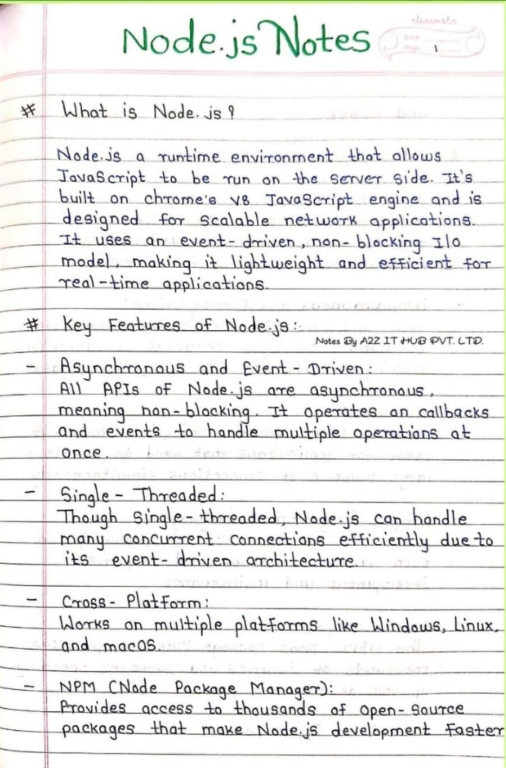 classmate
Date
Page 1
Node.js Notes
# What is Node.js?
Node.js a runtime environment that allows
JavaScript to be run on the server side. It's
built on chrome's V8 JavaScript engine and is
designed for scalable network applications.
It uses an event-driven, non-blocking I/o
model, making it lightweight and efficient for
real-time applications.
# Key Features of Node.js:
Notes By A2Z IT HUB PVT. LTD.
- Asynchronous and Event-Driven:
All APIs of Node.js are asynchronous,
meaning non-blocking. It operates on callbacks
and events to handle multiple operations at
once.
- Single-Threaded:
Though single-threaded, Node.js can handle
many concurrent connections efficiently due to
its event-driven architecture.
- Cross-Platform:
Works on multiple platforms like Windows, Linux,
and macOS.
- NPM (Node Package Manager):
Provides access to thousands of open-source
packages that make Node.js development faster